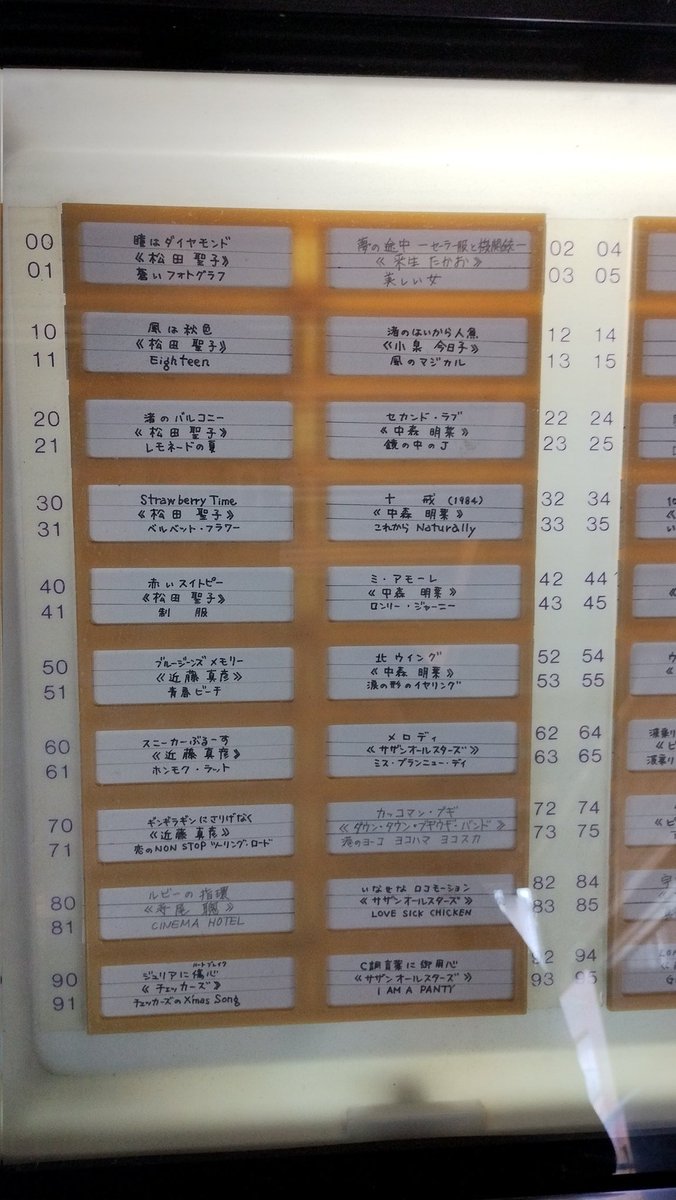 00
01
瞳はダイヤモンド
《松田 聖子》
蒼いフォトグラフ
夢の途中 ーセーラー服と機関銃ー
《来生 たかお》
美しい女
02 04
03 05
10
11
風は秋色
《松田 聖子》
Eighteen
渚のはいから人魚
《小泉 今日子》
風のマジカル
12 14
13 15
20
21
渚のバルコニー
《松田 聖子》
レモネードの夏
セカンド・ラブ
《中森 明菜》
鏡の中のJ
22 24
23 25
30
31
Strawberry Time
《松田 聖子》
ベルベット・フラワー
十 戒 (1984)
《中森 明菜》
これから Naturally
32 34
33 35
40
41
赤いスイトピー
《松田 聖子》
制 服
ミ・アモーレ
《中森 明菜》
ロンリー・ジャーニー
42 44
43 45
50
51
ブルージーンズメモリー
《近藤 真彦》
青春ビーチ
北ウイング
《中森 明菜》
涙の形のイヤリング
52 54
53 55
60
61
スニーカーぶるーす
《近藤 真彦》
ホンモク・ラット
メロディ
《サザンオールスターズ》
ミス・ブランニュー・デイ
62 64
63 65
70
71
ギンギラギンにさりげなく
《近藤 真彦》
恋のNON STOP ツーリング・ロード
カッコマン・ブギ
《ダウン・タウン・ブギウギ・バンド》
港のヨーコ ヨコハマ ヨコスカ
72 74
73 75
80
81
ルビーの指環
《寺尾 聰》
CINEMA HOTEL
いなせな ロコモーション
《サザンオールスターズ》
LOVE SICK CHICKEN
82 84
83 85
90
91
ハートブレイク
ジュリアに傷心
《チェッカーズ》
チェッカーズのXmas Song
C調言葉に御用心
《サザンオールスターズ》
I AM A PANTY
92 94
93 95